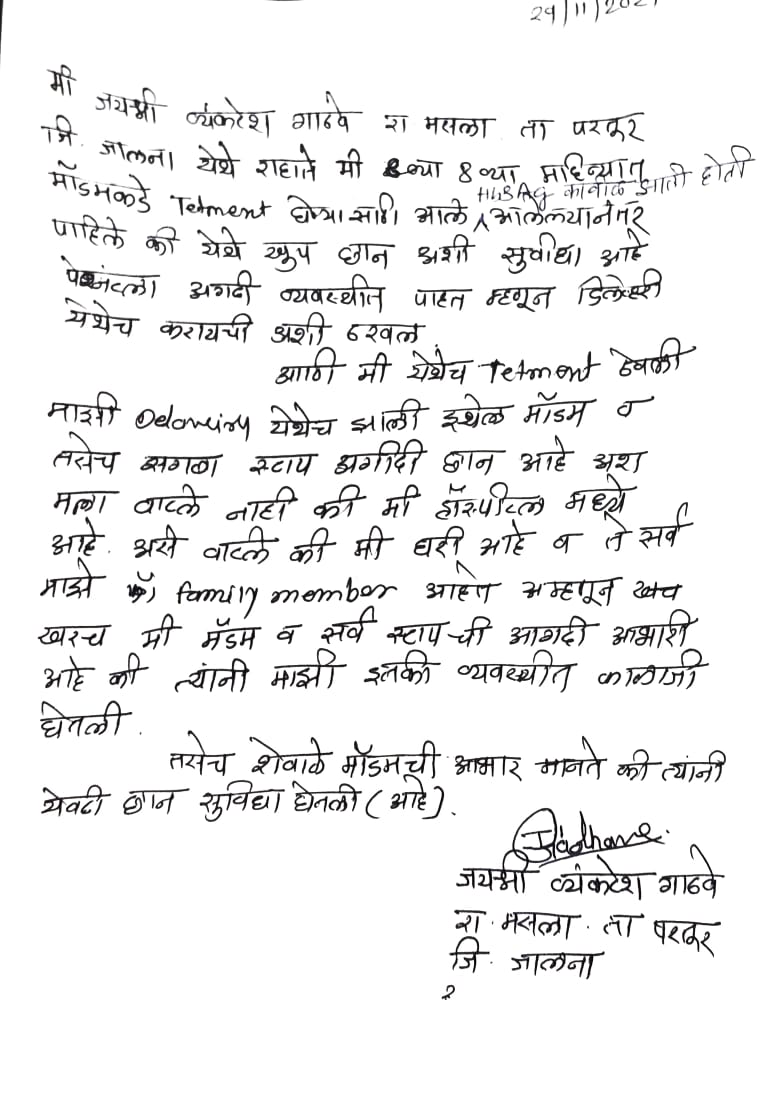 29/11/202
मी जयश्री व्यंकटेश गाढवे रा मसला ता परतूर
जि. जालना येथे राहाते मी 8व्या 8व्या महिन्यात
HbBAg कावीळ झाली होती
मॅाडमकडे Tetment घेण्यासाठी आले आलेल्यानंतर
पाहिले की येथे खुप छान अशी सुवीधा आहे
पेशंटला अगदी व्यवस्थीत पाहत म्हणून डिलेव्हरी
येथेच करायची अशी ठरवल
आणि मी येथेच Tetment ठेवली
माझी Delaveiry येथेच झाली इथेल मॅाडम व
तसेच सगळा स्टाप अगीदी छान आहे अश
मला वाटले नाही की मी हॉस्पीटल मध्ये
आहे. असे वाटले की मी घरी आहे व ते सर्व
माझे family member आहेत अम्हणून खच
खरच मी मॅडम व सर्व स्टापची आगदी आभारी
आहे की त्यांनी माझी इतकी व्यवस्थीत काळजी
घेतली.
तसेच शेवाळे मॅाडमची आभार मानते की त्यांनी
येवढी छान सुविधा घेतली (आहे).
जयश्री व्यंकटेश गाढवे
रा. मसला. ता परतूर
जि. जालना